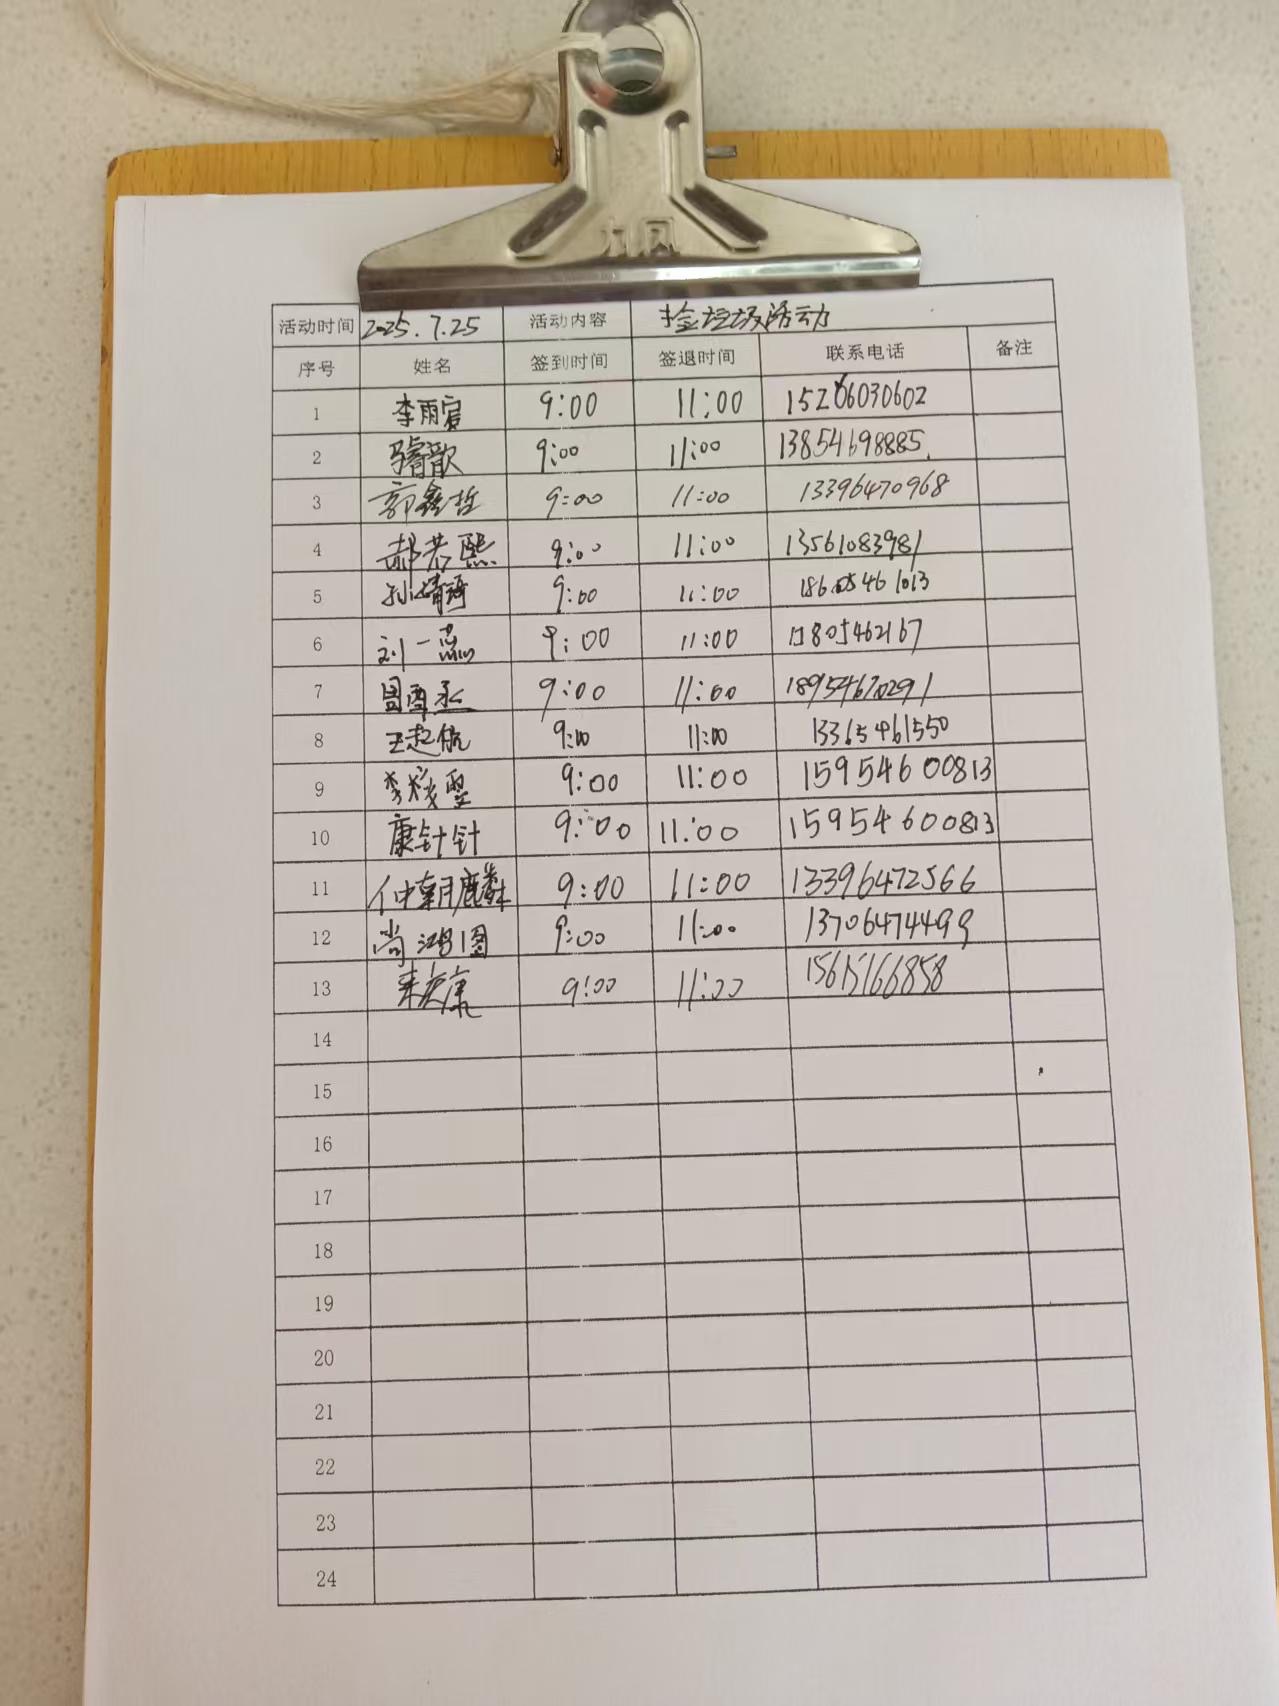 九凤
活动时间 2025.7.25 活动内容 捡垃圾活动
序号 姓名 签到时间 签退时间 联系电话 备注
1 李雨宸 9:00 11:00 15206030602
2 9:00 11:00 13854698885
3 郭鑫哲 9:00 11:00 13396470968
4 郝若熙 9:00 11:00 13561083981
5 9:00 11:00 18605461013
6 刘一燕 9:00 11:00
7 9:00 11:00 18954670291
8 王起航 9:00 11:00 13365461550
9 9:00 11:00 15954600813
10 康针针 9:00 11:00 15954600813
11 仲朝麟 9:00 11:00 13396472566
12 尚鸿图 9:00 11:00 13706474499
13 9:00 11:00 15615166858
14
15
16
17
18
19
20
21
22
23
24